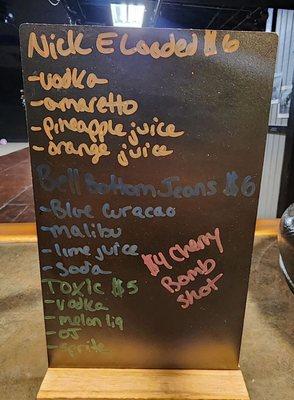 Nick E Loaded $6
- vodka
- amaretto
- pineapple juice
- orange juice
Bell Bottom Jeans $6
- Blue Curacao
- Malibu
- lime juice
- Soda
$4 Cherry
Bomb
shot
Toxic $5
- vodka
- melon liq
- OJ
- Sprite